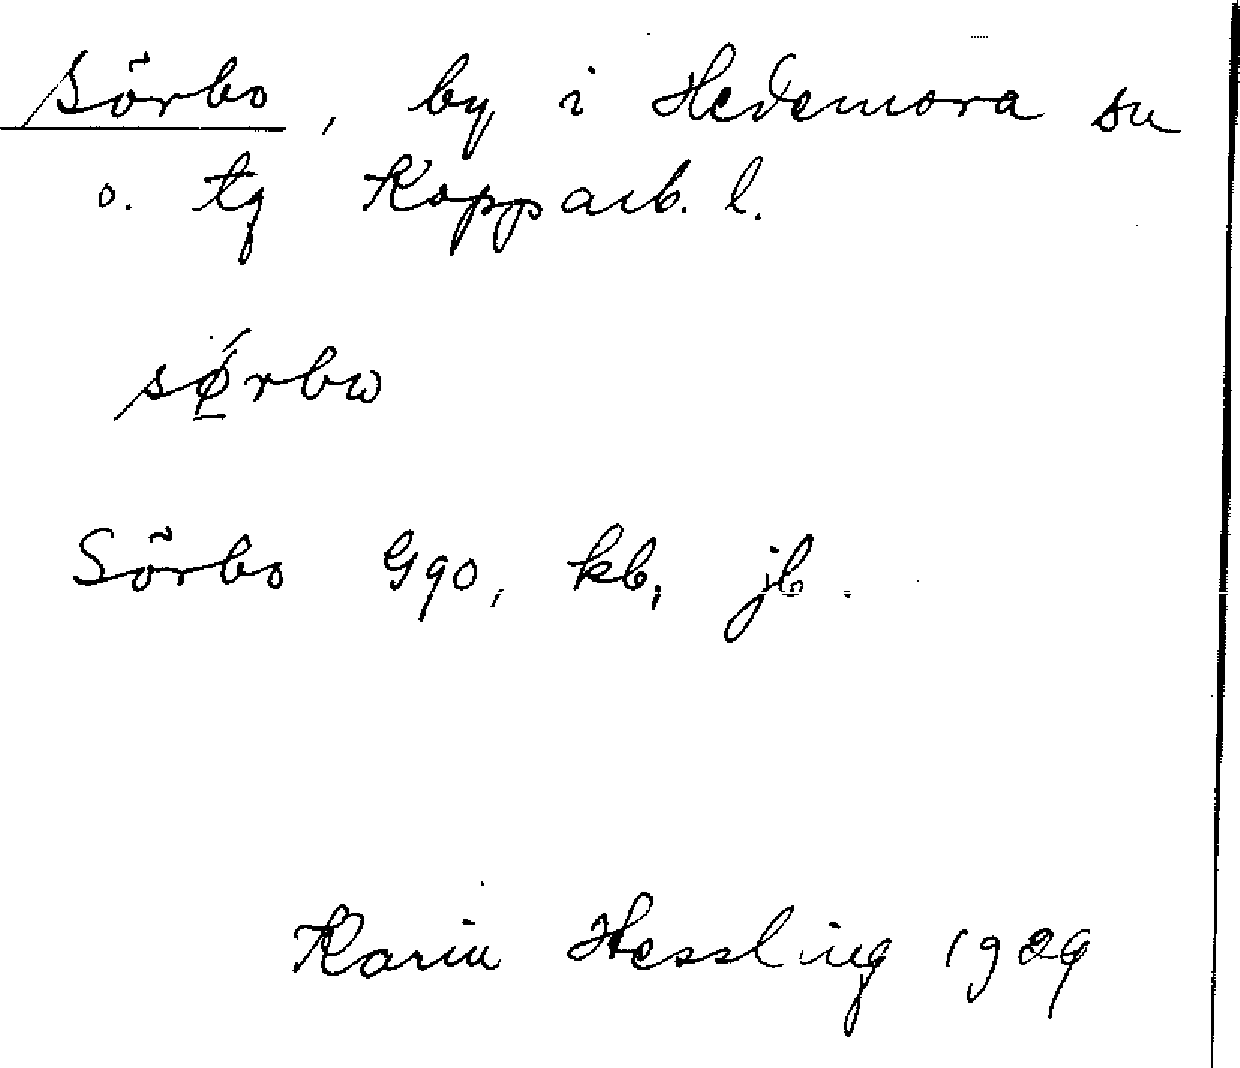 Sörbo, by i Hedemora sn
o. tg Kopparb. l.
sǿ̱rbω
Sörbo Ggo, kb, jb.
Karin Hessling 1929